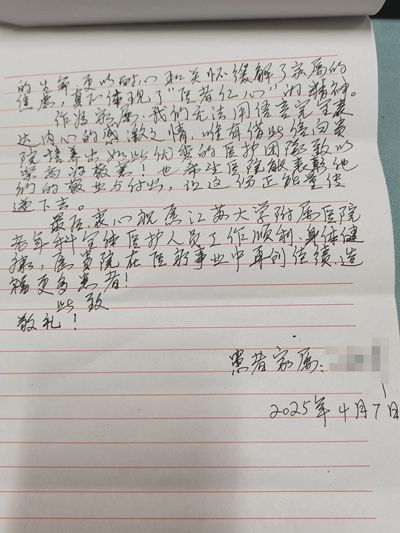 的生命,更以耐心和关怀缓解了家属的
焦虑,真正体现了“医者仁心”的精神。
作为家属,我们无法用语言完全表
达内心的感激之情,唯有借此信向贵
院培养出如此优秀的医护团队致以
崇高的敬意!也希望医院能表彰他
们的敬业与付出,让这份正能量传
递下去。
最后衷心祝愿江苏大学附属医院
老年科全体医护人员工作顺利,身体健
康,愿贵院在医疗事业中再创佳绩,造
福更多患者!
此致
敬礼!
患者家属:
2025年4月7日